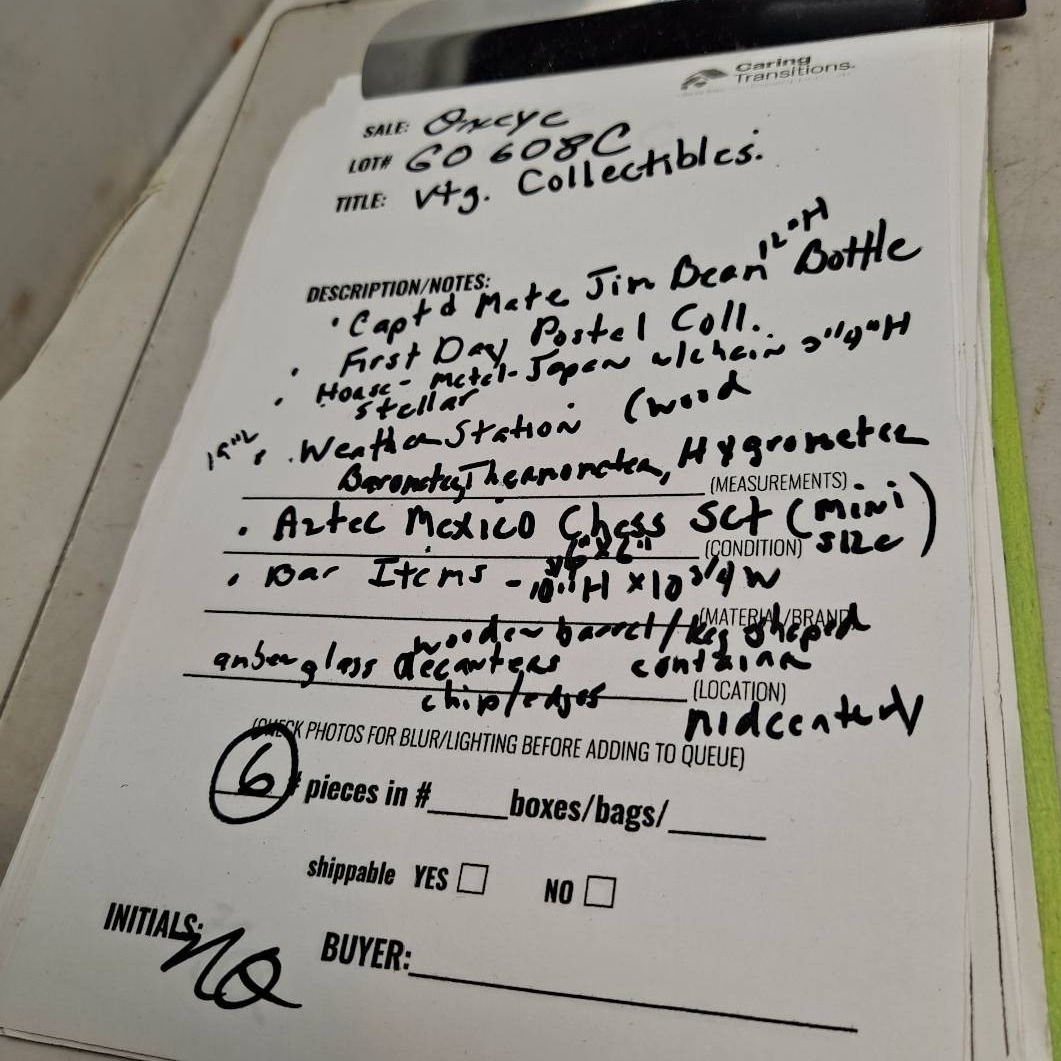 Caring
Transitions.
SALE: Oxeye
LOT# GO 608C
TITLE: Vtg. Collectibles.
DESCRIPTION/NOTES:
• Capt'd Mate Jim Bean 12"H Bottle
• First Day Postal Coll.
• House - Metal - Japan w/chain "H
Stellar
19"L • Weather Station (wood
Barometer, Thermometer, Hygrometer
(MEASUREMENTS)
• Aztec Mexico Chess Set (mini
6" x 6" (CONDITION) size)
• Bar Items - 10" H x 10 3/4 W
(MATERIAL/BRAND)
wooden barrel/keg shaped
amber glass decanters container
chip/edges (LOCATION)
midcentury
(CHECK PHOTOS FOR BLUR/LIGHTING BEFORE ADDING TO QUEUE)
6 # pieces in #_____ boxes/bags/_____
shippable YES □ NO □
INITIALS: NQ BUYER:_____